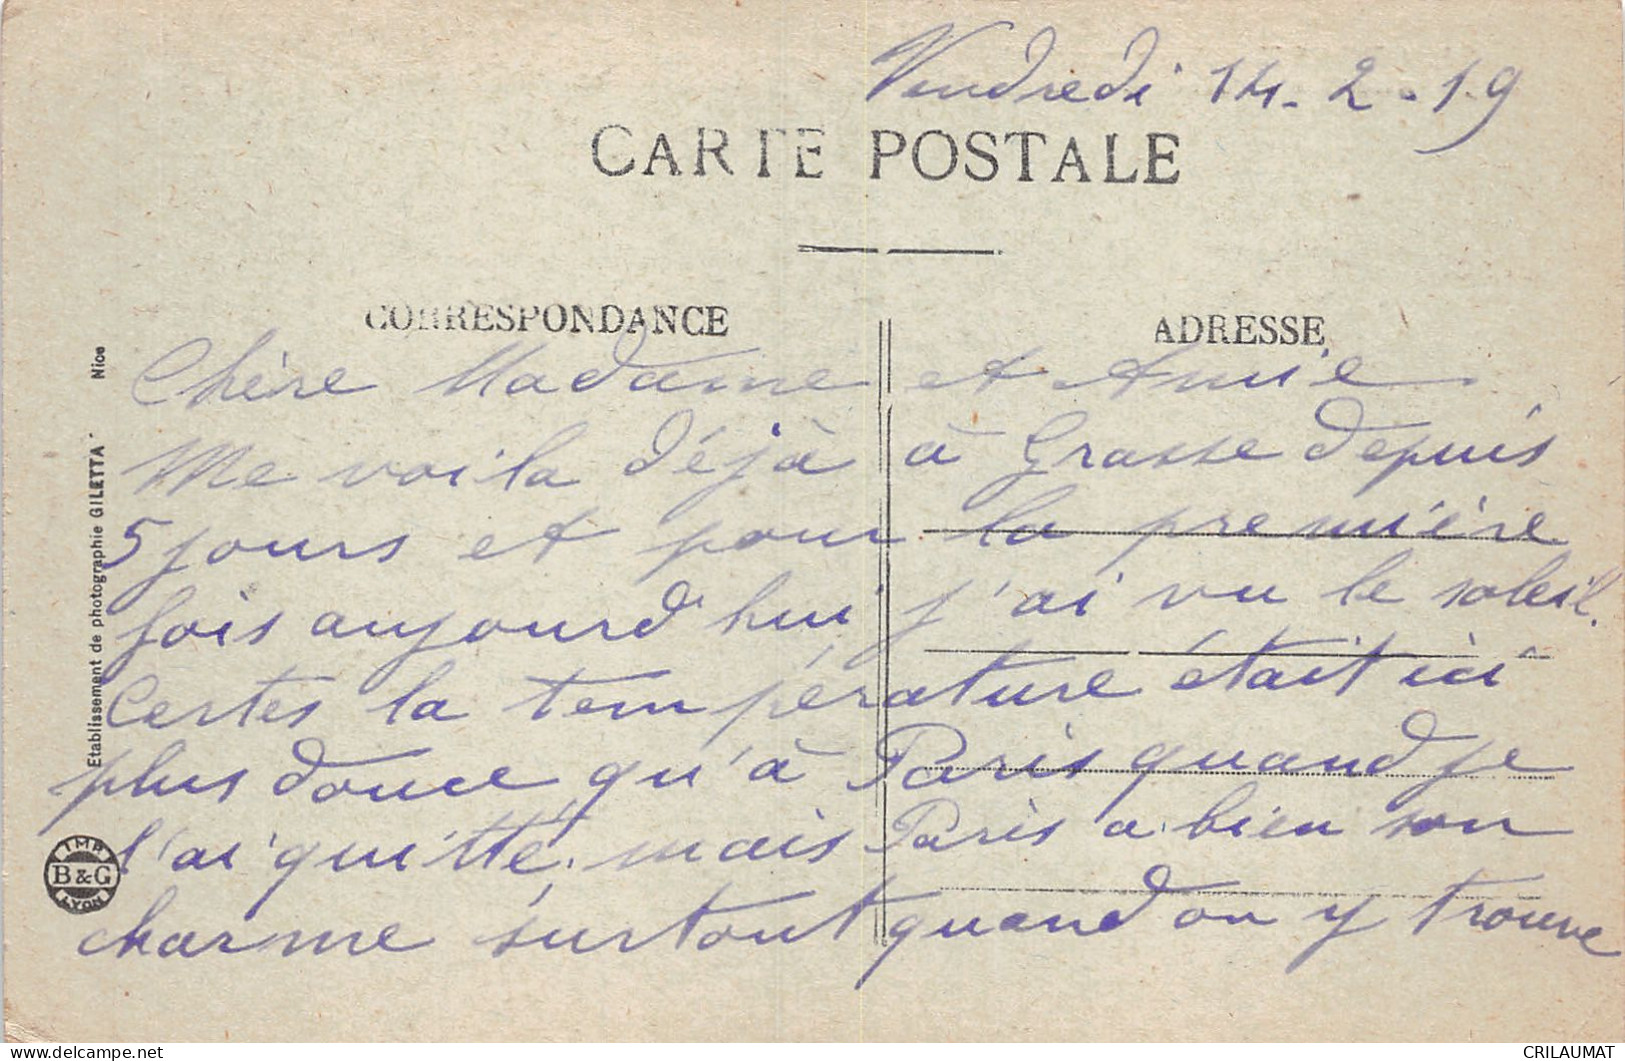 Vendredi 14-2-19
CARTE POSTALE
CORRESPONDANCE
ADRESSE
Chère Madame et Amie
Me voila déjà à Grasse depuis
5 jours et pour la première
fois aujourd'hui j'ai vu le soleil.
Certes la température était ici
plus douce qu'à Paris quand je
l'ai quitté, mais Paris a bien son
charme surtout quand on y trouve
Etablissement de photographie GILETTA Nice
IMP.
B&G
LYON
delcampe.net
CRILAUMAT